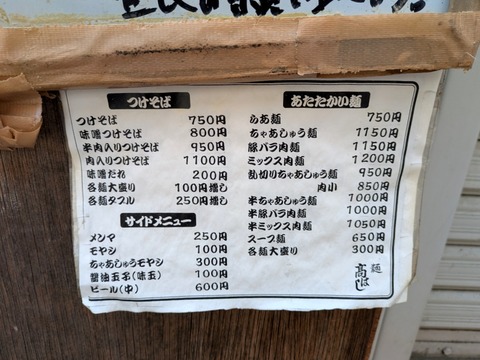 つけそば
つけそば 750円
味噌つけそば 800円
半肉入りつけそば 950円
肉入りつけそば 1100円
味噌だれ 200円
各麺大盛り 100円増し
各麺ダブル 250円増し
サイドメニュー
メンマ 250円
モヤシ 100円
ちゃあしゅうモヤシ 300円
醤油玉子(味玉) 100円
ビール(中) 600円
あたたかい麺
らあ麺 750円
ちゃあしゅう麺 1150円
豚バラ肉麺 1150円
ミックス肉麺 1200円
乱切りちゃあしゅう麺 950円
肉小 850円
半ちゃあしゅう麺 1000円
半豚バラ肉麺 1000円
半ミックス肉麺 1050円
スープ麺 650円
各麺大盛り 300円
麺
高はし